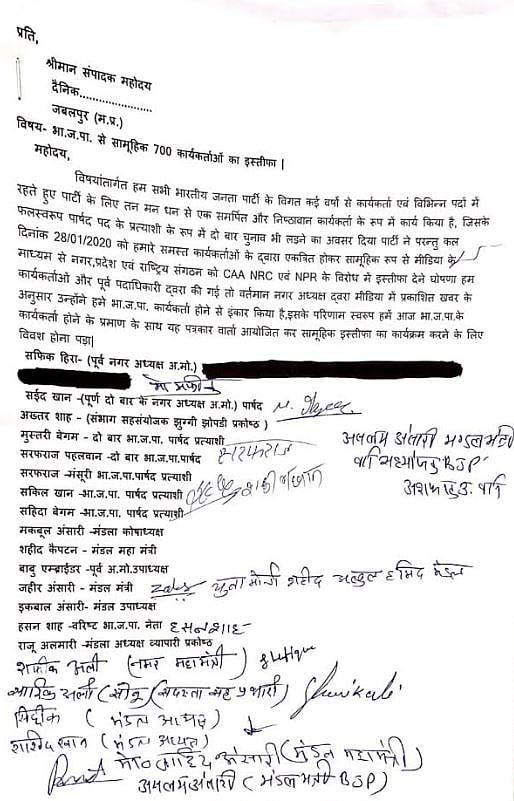 प्रति,
श्रीमान संपादक महोदय
दैनिक......................
जबलपुर (म.प्र.)
विषय- भा.ज.पा. से सामूहिक 700 कार्यकर्ताओं का इस्तीफा |
महोदय,
विषयांतार्गत हम सभी भारतीय जनता पार्टी के विगत कई वर्षो से कार्यकर्ता एवं विभिन्न पदों में
रहते हुए पार्टी के लिए तन मन धन से एक समर्पित और निष्ठावान कार्यकर्ता के रूप में कार्य किया है, जिसके
फलस्वरुप पार्षद पद के प्रत्याशी के रूप में दो बार चुनाव भी लड़ने का अवसर दिया पार्टी ने परन्तु कल
दिनांक 28/01/2020 को हमारे समस्त कार्यकर्ताओं के द्वारा एकत्रित होकर सामूहिक रूप से मीडिया के
माध्यम से नगर,प्रदेश एवं राष्ट्रिय संगठन को CAA NRC एवं NPR के विरोध में इस्तीफा देने घोषणा हम
कार्यकर्ताओं और पूर्व पदाधिकारी द्वरा की गई तो वर्तमान नगर अध्यक्ष द्वारा मीडिया में प्रकाशित खबर के
अनुसार उन्होंने हमे भा.ज.पा. कार्यकर्ता होने से इंकार किया है,इसके परिणाम स्वरुप हमें आज भा.ज.पा.के
कार्यकर्ता होने के प्रमाण के साथ यह पत्रकार वार्ता आयोजित कर सामूहिक इस्तीफा का कार्यक्रम करने के लिए
विवश होना पड़ा|
सफिक हिरा- (पूर्व नगर अध्यक्ष अ.मो.)
सईद खान -(पूर्ण दो बार के नगर अध्यक्ष अ.मो.) पार्षद
अख्तर शाह - (संभाग सहसंयोजक झुग्गी झोपडी प्रकोष्ठ )
मुस्तरी बेगम - दो बार भा.ज.पा. पार्षद प्रत्याशी
सरफराज पहलवान -दो बार भा.ज.पा. पार्षद सरफराज
असलम अंसारी मण्डल मंत्री
BJP
सरफराज -मंसूरी भा.ज.पा.पार्षद प्रत्याशी
सकिल खान -भा.ज.पा. पार्षद प्रत्याशी
सहिदा बेगम -भा.ज.पा. पार्षद प्रत्याशी
मकबूल अंसारी -मंडला कोषाध्यक्ष
शहीद कैपटन - मंडल महा मंत्री
बाबु एम्ब्राईडर -पूर्व अ.मो.उपाध्यक्ष
जहीर अंसारी - मंडल मंत्री युवा मोर्चा शहीद अब्दुल हमिद मंडल
इकबाल अंसारी- मंडल उपाध्यक्ष
हसन शाह -वरिष्ट भा.ज.पा. नेता हसनशाह
राजू अलमारी -मंडला अध्यक्ष व्यापारी प्रकोष्ठ
शफीक अली (नगर महामंत्री)
आरिफ अली (सोनू) (सदस्ता सह प्रभारी)
सिद्दीक (मंडल अध्यक्ष)
शाहिद खान (मंडल अध्यक्ष)
अंसारी (मंडल महामंत्री)
असलम अंसारी (मंडल मंत्री BJP)